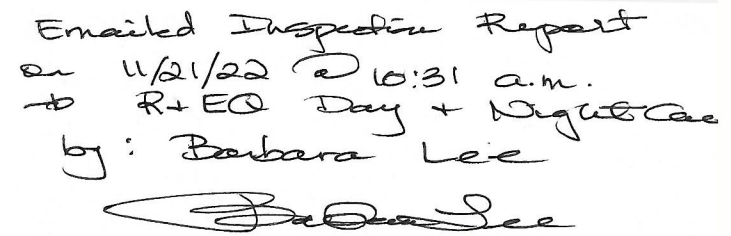 Emailed Inspection Report
on 11/21/22 @ 10:31 a.m.
to R+EQ Day + Night Care
by: Barbara Lee
Barbara Lee